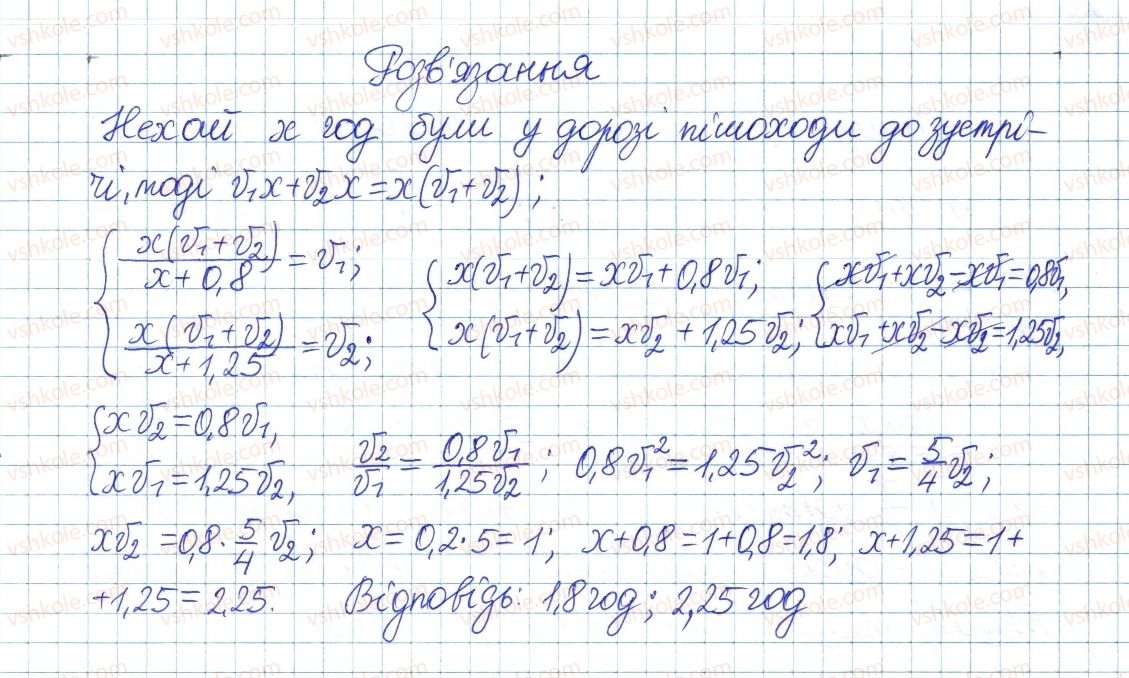 Розв'язання
Нехай x год були у дорозі пішоходи до зустрі-
чі, тоді v₁x+v₂x=x(v₁+v₂);
{ x(v₁+v₂)/(x+0,8) = v₁; x(v₁+v₂)/(x+1,25) = v₂; { x(v₁+v₂)=xv₁+0,8v₁; x(v₁+v₂)=xv₂+1,25v₂; { xv₁+xv₂-xv₁=0,8v₁, xv₁+xv₂-xv₂=1,25v₂,
{ xv₂=0,8v₁, xv₁=1,25v₂, v₂/v₁ = 0,8v₁/1,25v₂; 0,8v₁²=1,25v₂²; v₁=5/4v₂;
xv₂=0,8·5/4v₂; x=0,2·5=1; x+0,8=1+0,8=1,8; x+1,25=1+
+1,25=2,25. Відповідь: 1,8 год; 2,25 год
vshkole.com